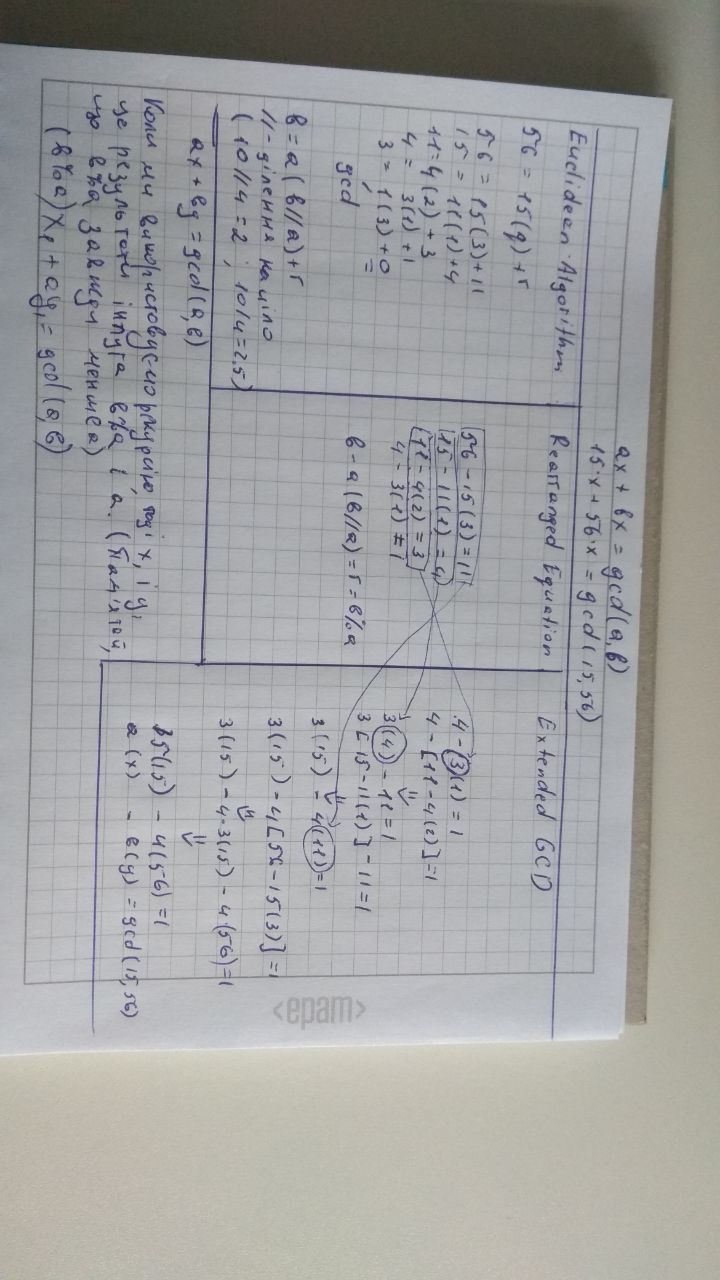 ax + bx = gcd(a,b)
15·x + 56·x = gcd(15,56)
Euclidean Algorithm
56 = 15(q) + r
56 = 15(3)+11
15 = 11(1)+4
11=4(2)+3
4 = 3(1)+1
3 = 1(3)+0
gcd
b=a(b//a)+r
//-ділення націло
(10//4=2; 10/4=2,5)
ax + by = gcd(a,b)
Rearranged Equation
56-15(3)=11
15-11(1)=4
11-4(2)=3
4-3(1)=1
b-a(b//a)=r=b%a
Extended GCD
4-3(1)=1
4-[11-4(2)]=1
3(4)-11=1
3[15-11(1)]-11=1
3(15)-4(11)=1
3(15)-4[56-15(3)]=1
3(15)-4·3(15)-4(56)=1
15(15)-4(56)=1
a(x) - b(y)=gcd(15,56)
Коли ми використовуємо рекурсію, тоді x, і y,
це результати інпута b%a і a. (Пам'ятай,
що b%a завжди менше a)
(b%a)x₁ + ay₁ = gcd(a,b)
<epam>